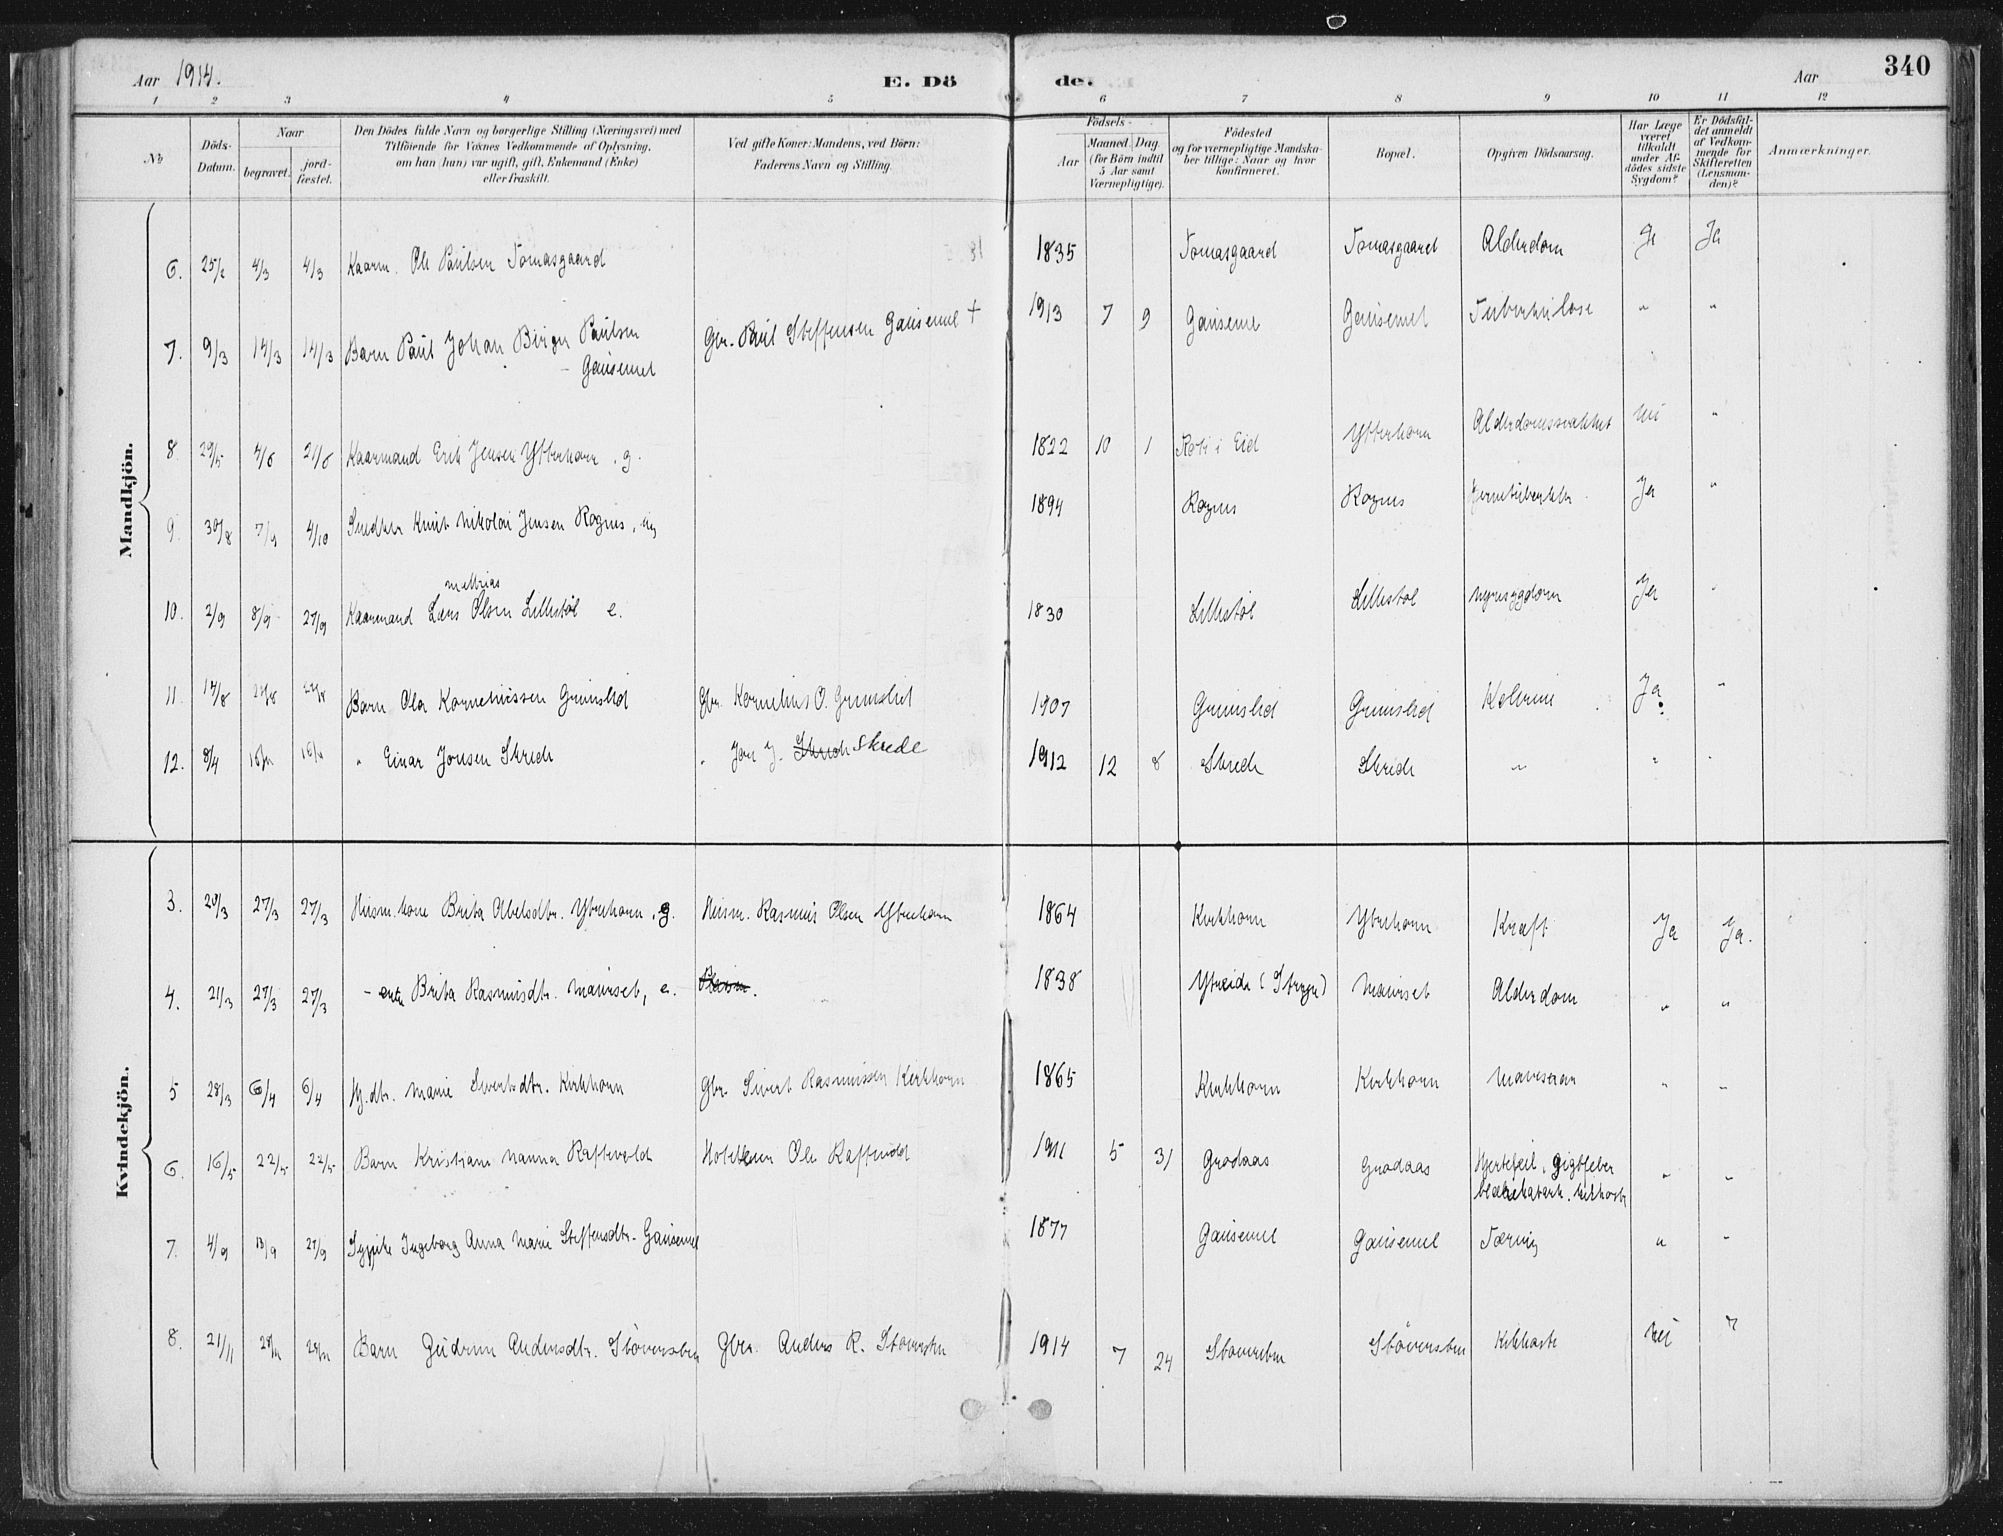 Aar 1914. E. Dö de. Aar 340
1 2 3 4 5 6 7 8 9 10 11 12
No
Döds-
Datum.
Naar
begravet.
jord-
fæstet.
Den Dödes fulde Navn og borgerlige Stilling (Næringsvei) med
Tilföiende for Voxnes Vedkommende af Oplysning,
om han (hun) var ugift, gift, Enkemand (Enke)
eller fraskilt.
Ved gifte Koner: Mandens, ved Börn:
Faderens Navn og Stilling.
Födsels-
Aar
Maaned. Dag.
(for Börn indtil
5 Aar samt
Værnepligtige).
Födested
og for værnepligtige Mandska-
ber tillige: Naar og hvor
konfirmeret.
Bopæl.
Opgiven Dödsaarsag.
Har Læge
været
tilkaldt
under Af-
dödes sidste
Sygdom?
Er Dödsfal-
det anmeldt
af Vedkom-
mende for
Skifteretten
(Lensman-
den)?
Anmærkninger.
Mandkjön.
6. 25/2 4/3 4/3 Kaarm. Ole Paulsen Tomasgaard 1835 Tomasgaard Tomasgaard Alderdom Ja Ja
7. 9/3 14/3 14/3 Barn Paul Johan Birger Paulsen Gbr. Paul Steffensen Gausemel + 1913 7 9 Gausemel Gausemel Tuberkulose " "
- Gausemel
8. 29/5 4/6 21/6 Kaarmand Erik Jensen Ytrehorn . g. 1822 10 1 i Eid Ytterhorn Alderdomssvakhet nei "
9. 30/8 7/9 4/10 Snedker Knut Nikolai Jensen Rognes, ug 1894 Rognes Rognes Ja "
mathias
10. 2/9 8/9 27/9 Kaarmand Lars Olsen Lillestøl e. 1830 Lillestøl Lillestøl nyresygdom Ja "
11. 14/8 Barn Ola Korneliussen Grimslid Gbr. Kornelius O. Grimslid 1907 Grimslid Grimslid Ja "
12. 8/4 " Einar Jonsen Skrede " Jon J. Skrede Skrede 1912 12 8 Skrede Skrede " " "
Kvindekjön.
3. 20/3 27/3 27/3 Husm. kone Brita Abelsdtr. Ytrehorn, g. Husm. Rasmus Olsen Ytrehorn 1864 Kirkhorn Ytrehorn Kræft Ja Ja.
4. 21/3 27/3 27/3 - enke Brita Rasmusdtr. Maurset, e. Husm. 1838 Ytreeide (Stryn) Maurset Alderdom " "
5 28/3 6/4 6/4 Hj.dtr. Marie Sivertsdtr. Kirkhorn Gbr. Sivert Rasmussen Kirkhorn 1865 Kirkhorn Kirkhorn " "
6. 16/5 22/5 22/5 Barn Kristiane Nanna Raftevold Hoteleier Ole Raftevold 1911 5 31 Grodaas Grodaas Hjertefeil, Gigtfeber " "
kikhoste
7. 4/9 13/9 27/9 Sypike Ingeborg Anna Marie Steffensdtr. Gausemel 1877 Gausemel Gausemel Tæring " "
8. 21/11 28/11 28/11 Barn Gudrun Andersdtr. Støversten Gbr. Anders R. Støversten 1914 7 24 Støversten Støversten Kikhoste Nei "